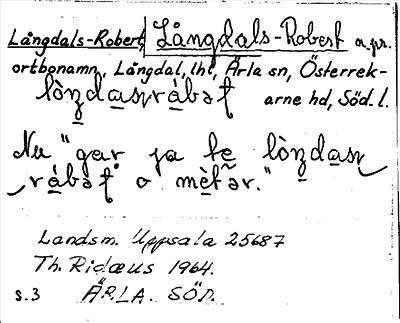 Långdals-Robert, Långdals-Robert n.pr.
ortbonamn, Långdal, lht, Ärla sn, Österrek-
lòṇdaṣràbət arne hd, Söd. l.
Nu "gar ja te lòṇdaṣ
ràbət o mètər."
Landsm. Uppsala 25687
Th. Ridæus 1964.
s.3 ÄRLA. SÖD.